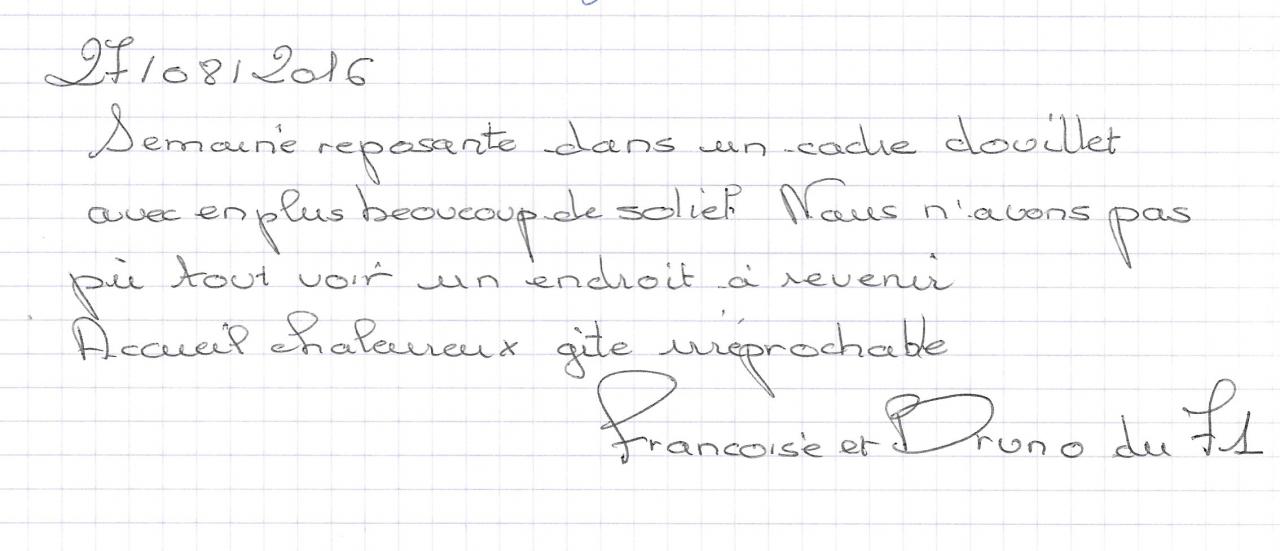 27/08/2016
Semaine reposante dans un cadre douillet
avec en plus beaucoup de soliel. Nous n'avons pas
pû tout voir un endroit à revenir
Accueil chaleureux gîte irréprochable
Francoise et Bruno du 71